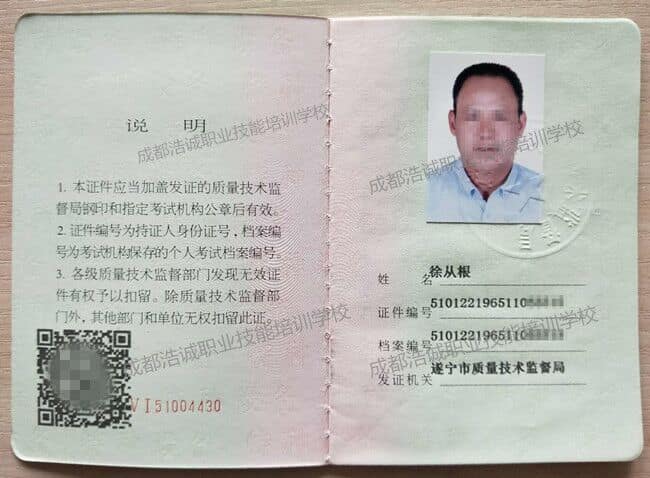 说 明
1. 本证件应当加盖发证的质量技术监
督局钢印和指定考试机构公章后有效。
2. 证件编号为持证人身份证号，档案编
号为考试机构保存的个人考试档案编号。
3. 各级质量技术监督部门发现无效证
件有权予以扣留。除质量技术监督部
门外，其他部门和单位无权扣留此证。
VI51004430
姓 名 徐从根
证件编号 5101221965110
档案编号 5101221965110
发证机关 遂宁市质量技术监督局
成都浩诚职业技能培训学校
成都浩诚职业技能培训学校
成都浩诚职业技能培训学校
成都浩诚职业技能培训学校